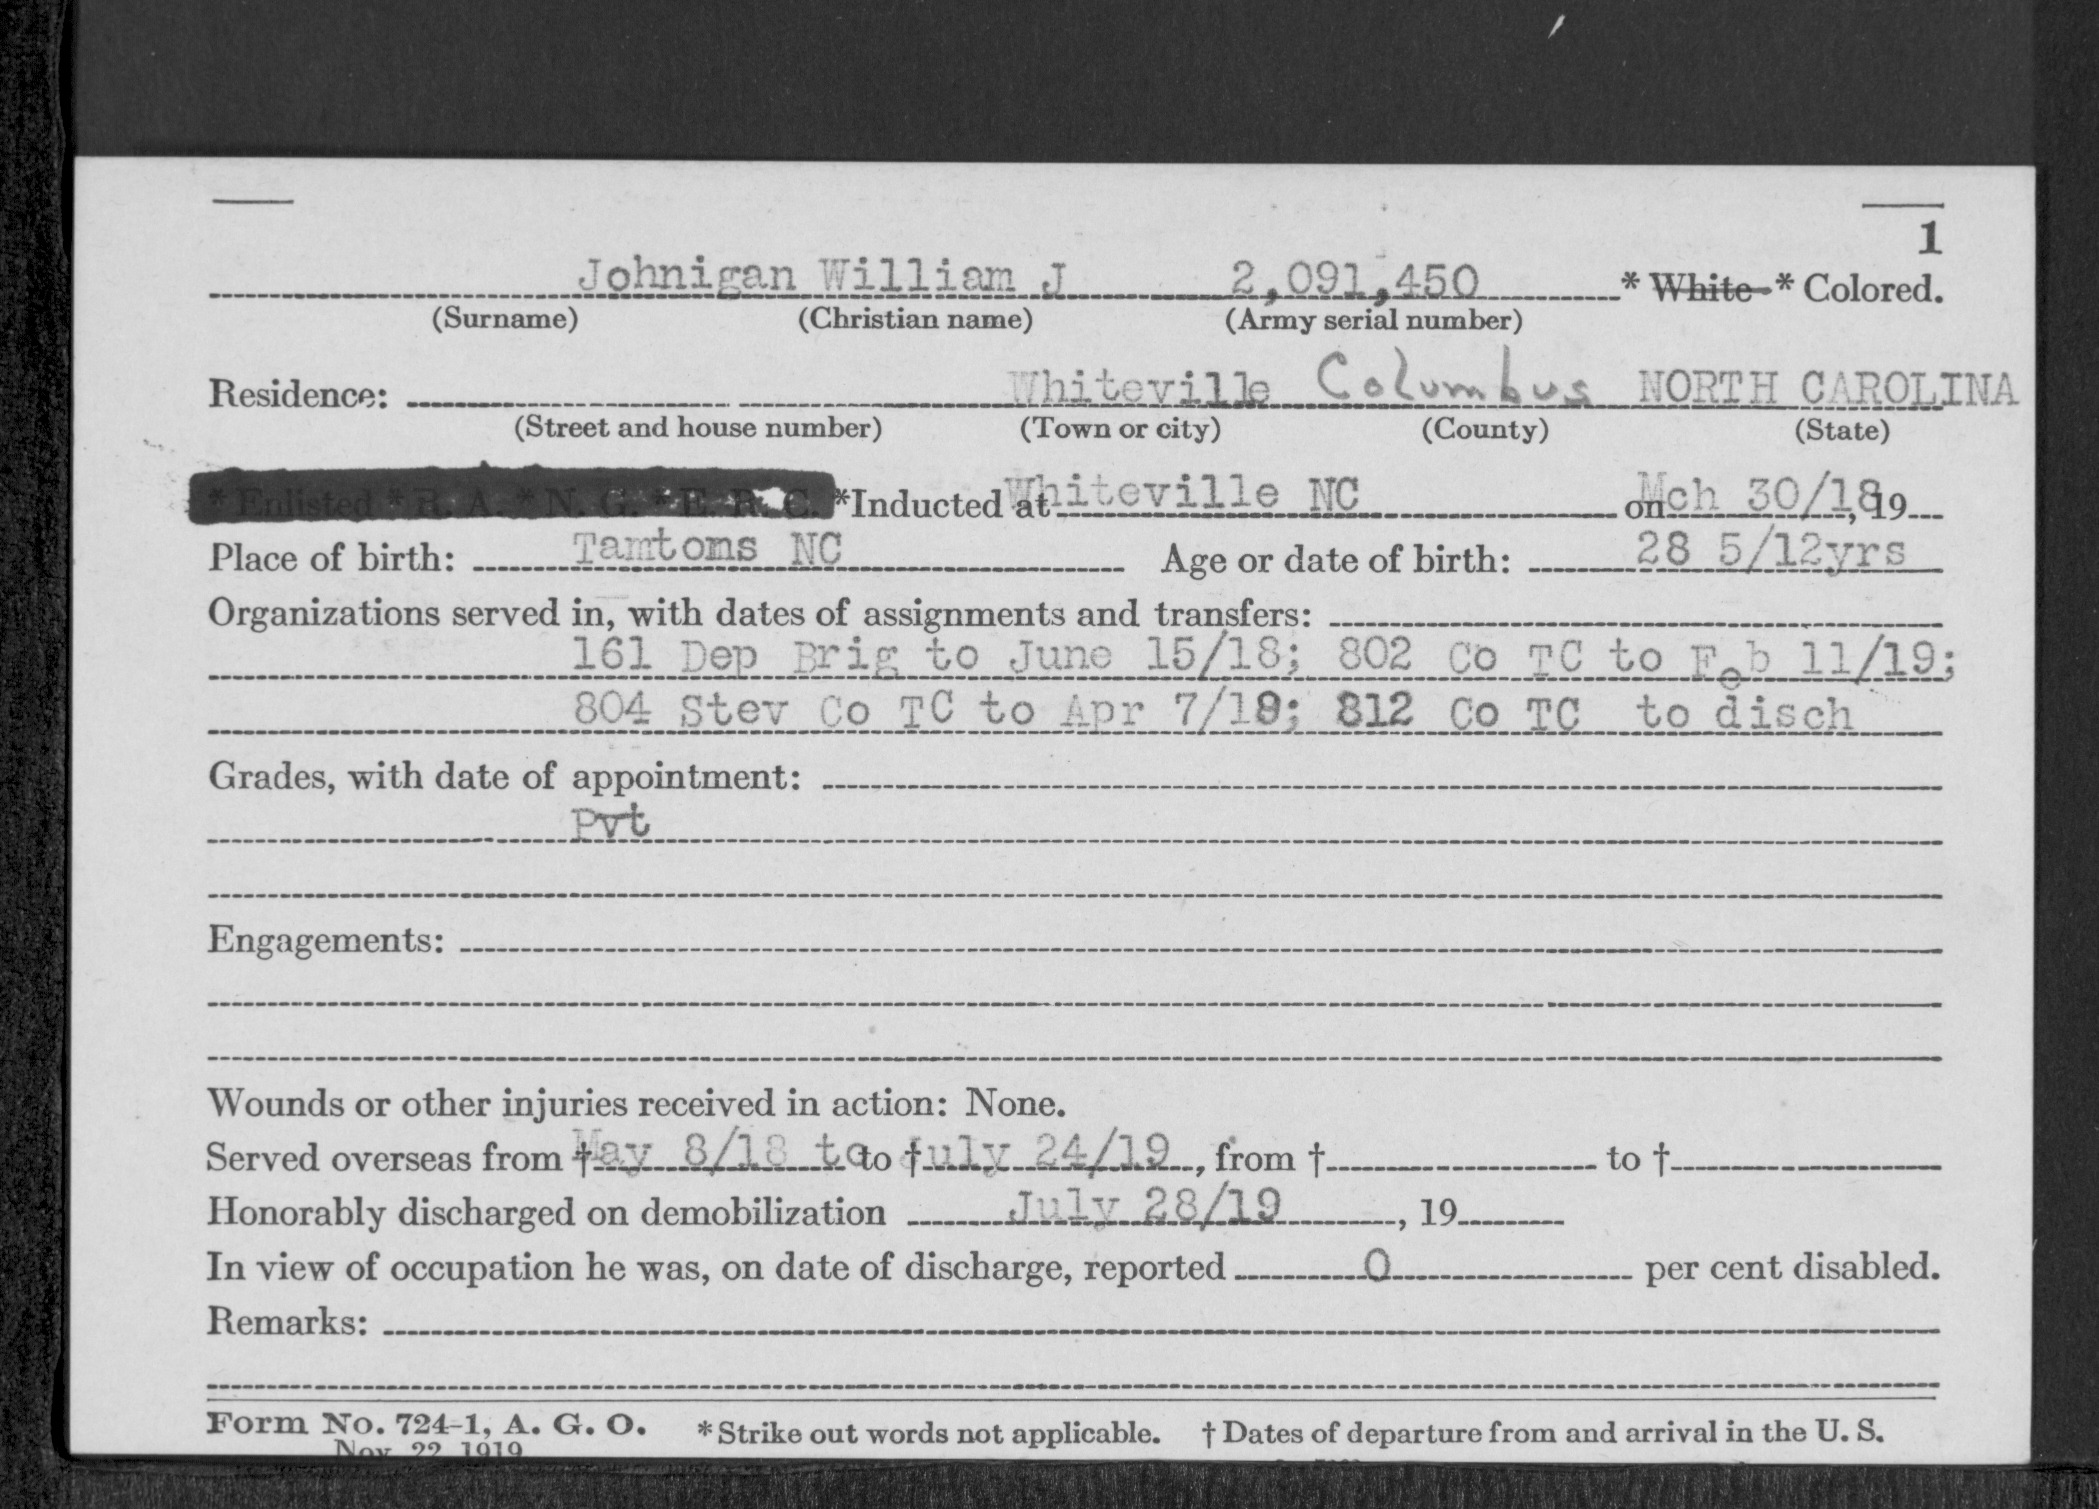 1
Johnigan William J 2,091,450 * White * Colored.
(Surname) (Christian name) (Army serial number)
Residence: Whiteville Columbus NORTH CAROLINA
(Street and house number) (Town or city) (County) (State)
* Enlisted * R. A. * N. G. * E. R. C. *Inducted at Whiteville NC on Mch 30/18, 19
Place of birth: Tamtoms NC Age or date of birth: 28 5/12yrs
Organizations served in, with dates of assignments and transfers:
161 Dep Brig to June 15/18; 802 Co TC to Feb 11/19;
804 Stev Co TC to Apr 7/19; 812 Co TC to disch
Grades, with date of appointment:
Pvt
Engagements:
Wounds or other injuries received in action: None.
Served overseas from † May 8/18 to to † July 24/19, from † to †
Honorably discharged on demobilization July 28/19, 19
In view of occupation he was, on date of discharge, reported 0 per cent disabled.
Remarks:
Form No. 724-1, A. G. O. * Strike out words not applicable. † Dates of departure from and arrival in the U. S.
Nov. 22, 1919